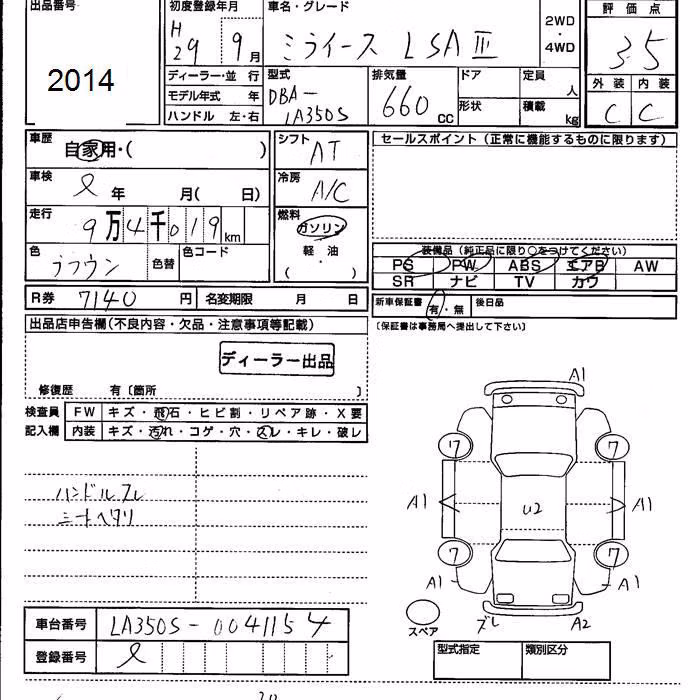 出品番号
2014
初度登録年月
H29 9月
車名・グレード
ミライース LSAⅢ
2WD
・
4WD
評価点
3.5
外装 内装
C C
ディーラー・並 行
モデル年式 年
ハンドル 左・右
型式
DBA-
LA350S
排気量
660 CC
ドア
形状
定員 人
積載 kg
車歴
自家用・( )
車検 年 月( 日)
走行
9万4千019km
色
ブラウン
色替
色コード
シフト
AT
冷房
A/C
燃料
ガソリン
軽・油
( ・ )
セールスポイント(正常に機能するものに限ります)
装備品(純正品に限り○をつけてください)
PS PW ABS エアB AW
SR ナビ TV カワ
R券 7140 円 名変期限 月 日
新車保証書 有・無 後日品
〔保証書は事務局へ提出して下さい〕
出品店申告欄(不良内容・欠品・注意事項等記載)
ディーラー出品
修復歴 有〔箇所 〕
検査員
記入欄
FW キズ・飛石・ヒビ割・リペア跡・X要
内装 キズ・汚れ・コゲ・穴・スレ・キレ・破レ
ハンドルスレ
シートヘタリ
A1
7 7
A1 A1
U2
7 7
A1 A1
ズレ A2
スペア
車台番号 LA350S-0041154
登録番号
型式指定 類別区分